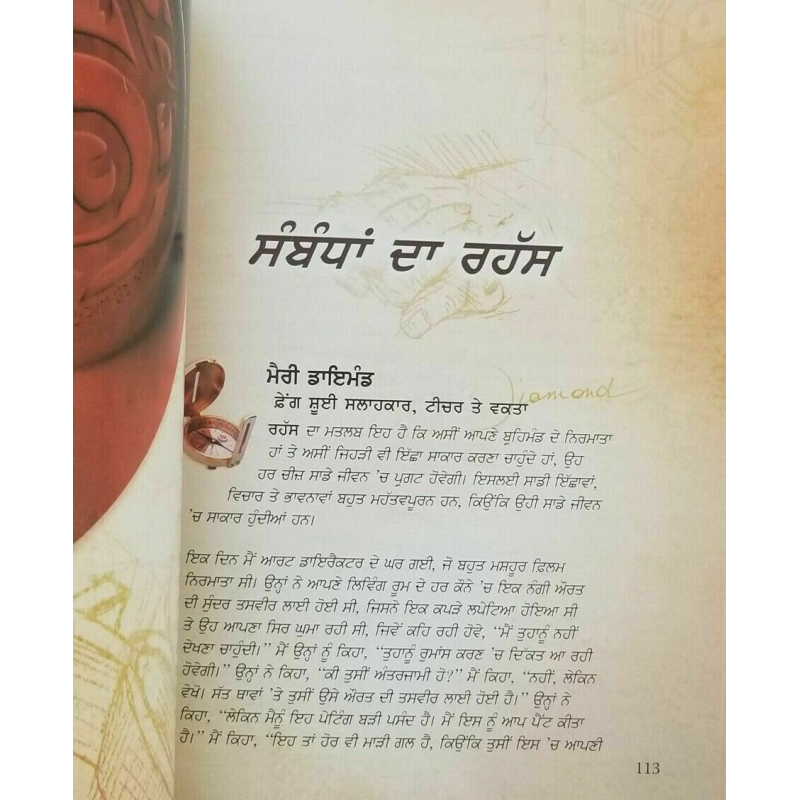 ਸੰਬੰਧਾਂ ਦਾ ਰਹੱਸ
ਮੈਰੀ ਡਾਇਮੰਡ
Diamond
ਫ਼ੇਂਗ ਸ਼ੂਈ ਸਲਾਹਕਾਰ, ਟੀਚਰ ਤੇ ਵਕਤਾ
ਰਹੱਸ ਦਾ ਮਤਲਬ ਇਹ ਹੈ ਕਿ ਅਸੀਂ ਆਪਣੇ ਬ੍ਰਹਿਮੰਡ ਦੇ ਨਿਰਮਾਤਾ
ਹਾਂ ਤੇ ਅਸੀਂ ਜਿਹੜੀ ਵੀ ਇੱਛਾ ਸਾਕਾਰ ਕਰਣਾ ਚਾਹੁੰਦੇ ਹਾਂ, ਉਹ
ਹਰ ਚੀਜ਼ ਸਾਡੇ ਜੀਵਨ 'ਚ ਪ੍ਰਗਟ ਹੋਵੇਗੀ। ਇਸਲਈ ਸਾਡੀ ਇੱਛਾਵਾਂ,
ਵਿਚਾਰ ਤੇ ਭਾਵਨਾਵਾਂ ਬਹੁਤ ਮਹੱਤਵਪੂਰਨ ਹਨ, ਕਿਉਂਕਿ ਉਹੀ ਸਾਡੇ ਜੀਵਨ
'ਚ ਸਾਕਾਰ ਹੁੰਦੀਆਂ ਹਨ।
ਇਕ ਦਿਨ ਮੈਂ ਆਰਟ ਡਾਇਰੈਕਟਰ ਦੇ ਘਰ ਗਈ, ਜੋ ਬਹੁਤ ਮਸ਼ਹੂਰ ਫਿਲਮ
ਨਿਰਮਾਤਾ ਸੀ। ਉਨ੍ਹਾਂ ਨੇ ਆਪਣੇ ਲਿਵਿੰਗ ਰੂਮ ਦੇ ਹਰ ਕੌਨੇ 'ਚ ਇਕ ਨੰਗੀ ਔਰਤ
ਦੀ ਸੁੰਦਰ ਤਸਵੀਰ ਲਾਈ ਹੋਈ ਸੀ, ਜਿਸਨੇ ਇਕ ਕਪੜੇ ਲਪੇਟਿਆ ਹੋਇਆ ਸੀ
ਤੇ ਉਹ ਆਪਣਾ ਸਿਰ ਘੁਮਾ ਰਹੀ ਸੀ, ਜਿਵੇਂ ਕਹਿ ਰਹੀ ਹੋਵੇ, "ਮੈਂ ਤੁਹਾਨੂੰ ਨਹੀਂ
ਦੇਖਣਾ ਚਾਹੁੰਦੀ।" ਮੈਂ ਉਨ੍ਹਾਂ ਨੂੰ ਕਿਹਾ, "ਤੁਹਾਨੂੰ ਰੁਮਾਂਸ ਕਰਣ 'ਚ ਦਿੱਕਤ ਆ ਰਹੀ
ਹੋਵੇਗੀ।" ਉਨ੍ਹਾਂ ਨੇ ਕਿਹਾ, "ਕੀ ਤੁਸੀਂ ਅੰਤਰਜਾਮੀ ਹੋ?" ਮੈਂ ਕਿਹਾ, "ਨਹੀਂ, ਲੇਕਿਨ
ਵੇਖੋ। ਸੱਤ ਥਾਵਾਂ 'ਤੇ ਤੁਸੀਂ ਉਸੇ ਔਰਤ ਦੀ ਤਸਵੀਰ ਲਾਈ ਹੋਈ ਹੈ।" ਉਨ੍ਹਾਂ ਨੇ
ਕਿਹਾ, "ਲੇਕਿਨ ਮੈਨੂੰ ਇਹ ਪੇਟਿੰਗ ਬੜੀ ਪਸੰਦ ਹੈ। ਮੈਂ ਇਸ ਨੂੰ ਆਪ ਪੈਂਟ ਕੀਤਾ
ਹੈ।" ਮੈਂ ਕਿਹਾ, "ਇਹ ਤਾਂ ਹੋਰ ਵੀ ਮਾੜੀ ਗਲ ਹੈ, ਕਿਉਂਕਿ ਤੁਸੀਂ ਇਸ 'ਚ ਆਪਣੀ
113